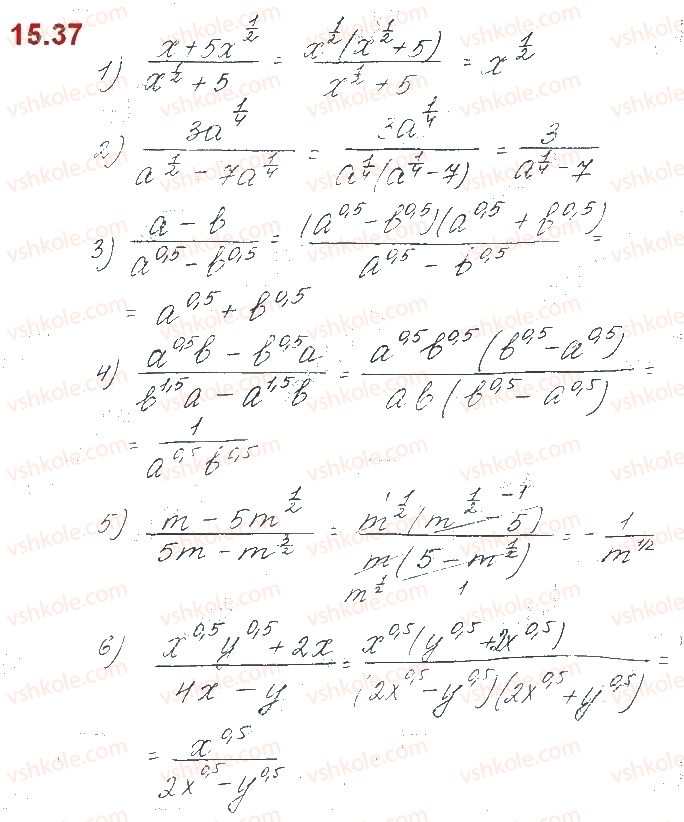 15.37
1) (x + 5x^(1/2)) / (x^(1/2) + 5) = (x^(1/2)(x^(1/2) + 5)) / (x^(1/2) + 5) = x^(1/2)
2) (3a^(1/4)) / (a^(1/2) - 7a^(1/4)) = (3a^(1/4)) / (a^(1/4)(a^(1/4) - 7)) = 3 / (a^(1/4) - 7)
3) (a - b) / (a^(0,5) - b^(0,5)) = ((a^(0,5) - b^(0,5))(a^(0,5) + b^(0,5))) / (a^(0,5) - b^(0,5)) =
= a^(0,5) + b^(0,5)
4) (a^(0,5)b - b^(0,5)a) / (b^(1,5)a - a^(1,5)b) = (a^(0,5)b^(0,5)(b^(0,5) - a^(0,5))) / (ab(b^(0,5) - a^(0,5))) =
= 1 / (a^(0,5)b^(0,5))
5) (m - 5m^(1/2)) / (5m - m^(3/2)) = (m^(1/2)(m^(1/2) - 5)) / (m(5 - m^(1/2))) = - 1 / m^(1/2)
1 -1
m^(1/2) 1
6) (x^(0,5)y^(0,5) + 2x) / (4x - y) = (x^(0,5)(y^(0,5) + 2x^(0,5))) / ((2x^(0,5) - y^(0,5))(2x^(0,5) + y^(0,5))) =
= x^(0,5) / (2x^(0,5) - y^(0,5))
vshkole.com